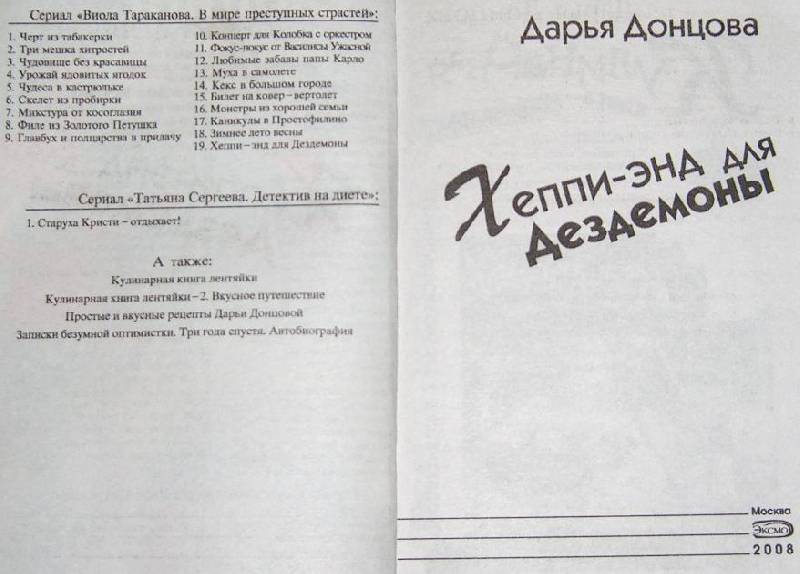 Сериал «Виола Тараканова. В мире преступных страстей»:
1. Черт из табакерки
2. Три мешка хитростей
3. Чудовище без красавицы
4. Урожай ядовитых ягодок
5. Чудеса в кастрюльке
6. Скелет из пробирки
7. Микстура от косоглазия
8. Филе из Золотого Петушка
9. Главбух и полцарства в придачу
10. Концерт для Колобка с оркестром
11. Фокус-покус от Василисы Ужасной
12. Любимые забавы папы Карло
13. Муха в самолете
14. Кекс в большом городе
15. Билет на ковер-вертолет
16. Монстры из хорошей семьи
17. Каникулы в Простофилино
18. Зимнее лето весны
19. Хеппи-энд для Дездемоны
Сериал «Татьяна Сергеева. Детектив на диете»:
1. Старуха Кристи – отдыхает!
А также:
Кулинарная книга лентяйки
Кулинарная книга лентяйки–2. Вкусное путешествие
Простые и вкусные рецепты Дарьи Донцовой
Записки безумной оптимистки. Три года спустя. Автобиография
Дарья Донцова
Хеппи-энд для
Дездемоны
Москва
ЭКСМО
2008